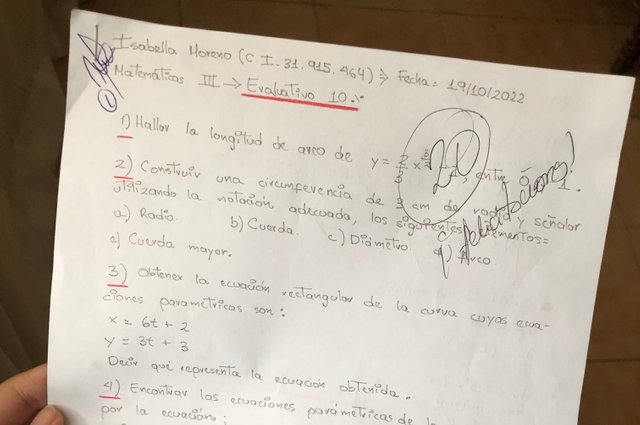 Isabella Moreno (C.I. 31.915.464) → Fecha: 19/10/2022
Matemáticas III → Evaluativo 10.-
1) Hallar la longitud de arco de y = 2/3 x^3/2, entre 0 1.
20
2) Construir una circunferencia de 3 cm de radio y señalar
utilizando la notación adecuada, los siguientes elementos=
¡felicitaciones!
a) Radio. b) Cuerda. c) Diámetro d) Arco.
e) Cuerda mayor.
3) Obtener la ecuación rectangular de la curva cuyas ecua-
ciones parametricas son:
x = 6t + 2
y = 3t + 3
Decir qué representa la ecuación obtenida.
4) Encontrar las ecuaciones parámetricas de
por la ecuación: